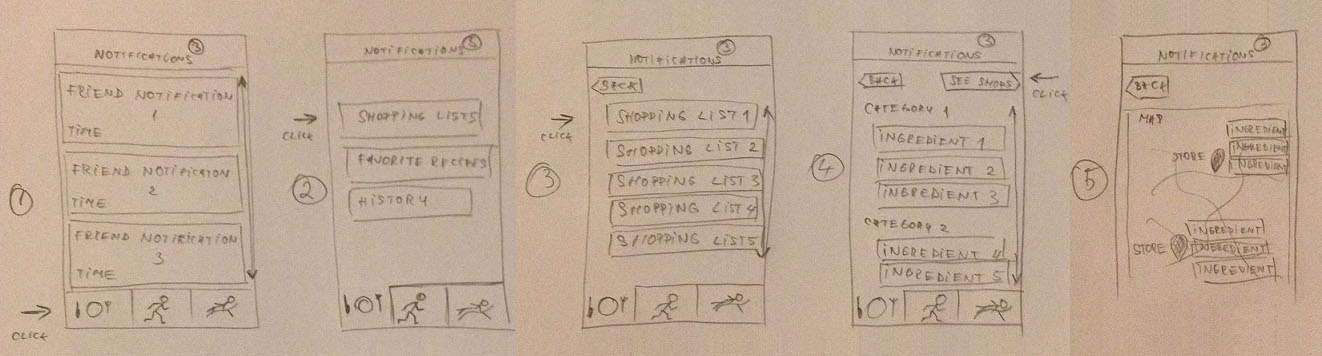 NOTIFICATIONS 3
FRIEND NOTIFICATION
1
TIME
FRIEND NOTIFICATION
2
TIME
FRIEND NOTIFICATION
3
TIME
1
CLICK
NOTIFICATIONS
SHOPPING LISTS
CLICK
2
HISTORY
NOTIFICATIONS 3
BACK
SHOPPING LIST 1
CLICK
SHOPPING LIST 2
3
SHOPPING LIST 3
SHOPPING LIST 4
SHOPPING LIST 5
NOTIFICATIONS 3
BACK SEE SHOPS
CLICK
CATEGORY 1
INGREDIENT 1
4
INGREDIENT 2
INGREDIENT 3
CATEGORY 2
INGREDIENT 4
INGREDIENT 5
NOTIFICATIONS
BACK
MAP
INGREDIENT
INGREDIENT
STORE INGREDIENT
5
INGREDIENT
STORE INGREDIENT
INGREDIENT